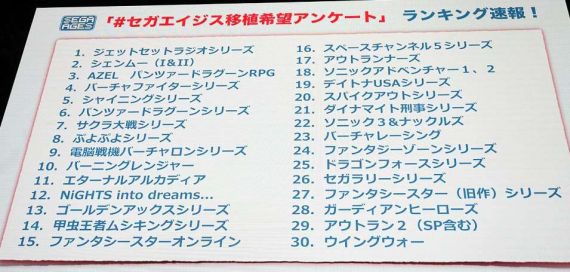 SEGA AGES
「#セガエイジス移植希望アンケート」 ランキング速報！
1. ジェットセットラジオシリーズ
2. シェンムー（I＆II）
3. AZEL パンツァードラグーンRPG
4. バーチャファイターシリーズ
5. シャイニングシリーズ
6. パンツァードラグーンシリーズ
7. サクラ大戦シリーズ
8. ぷよぷよシリーズ
9. 電脳戦機バーチャロンシリーズ
10. バーニングレンジャー
11. エターナルアルカディア
12. NiGHTS into dreams...
13. ゴールデンアックスシリーズ
14. 甲虫王者ムシキングシリーズ
15. ファンタシースターオンライン
16. スペースチャンネル５シリーズ
17. アウトランナーズ
18. ソニックアドベンチャー１、２
19. デイトナUSAシリーズ
20. スパイクアウトシリーズ
21. ダイナマイト刑事シリーズ
22. ソニック３&ナックルズ
23. バーチャレーシング
24. ファンタジーゾーンシリーズ
25. ドラゴンフォースシリーズ
26. セガラリーシリーズ
27. ファンタシースター（旧作）シリーズ
28. ガーディアンヒーローズ
29. アウトラン２（SP含む）
30. ウイングウォー